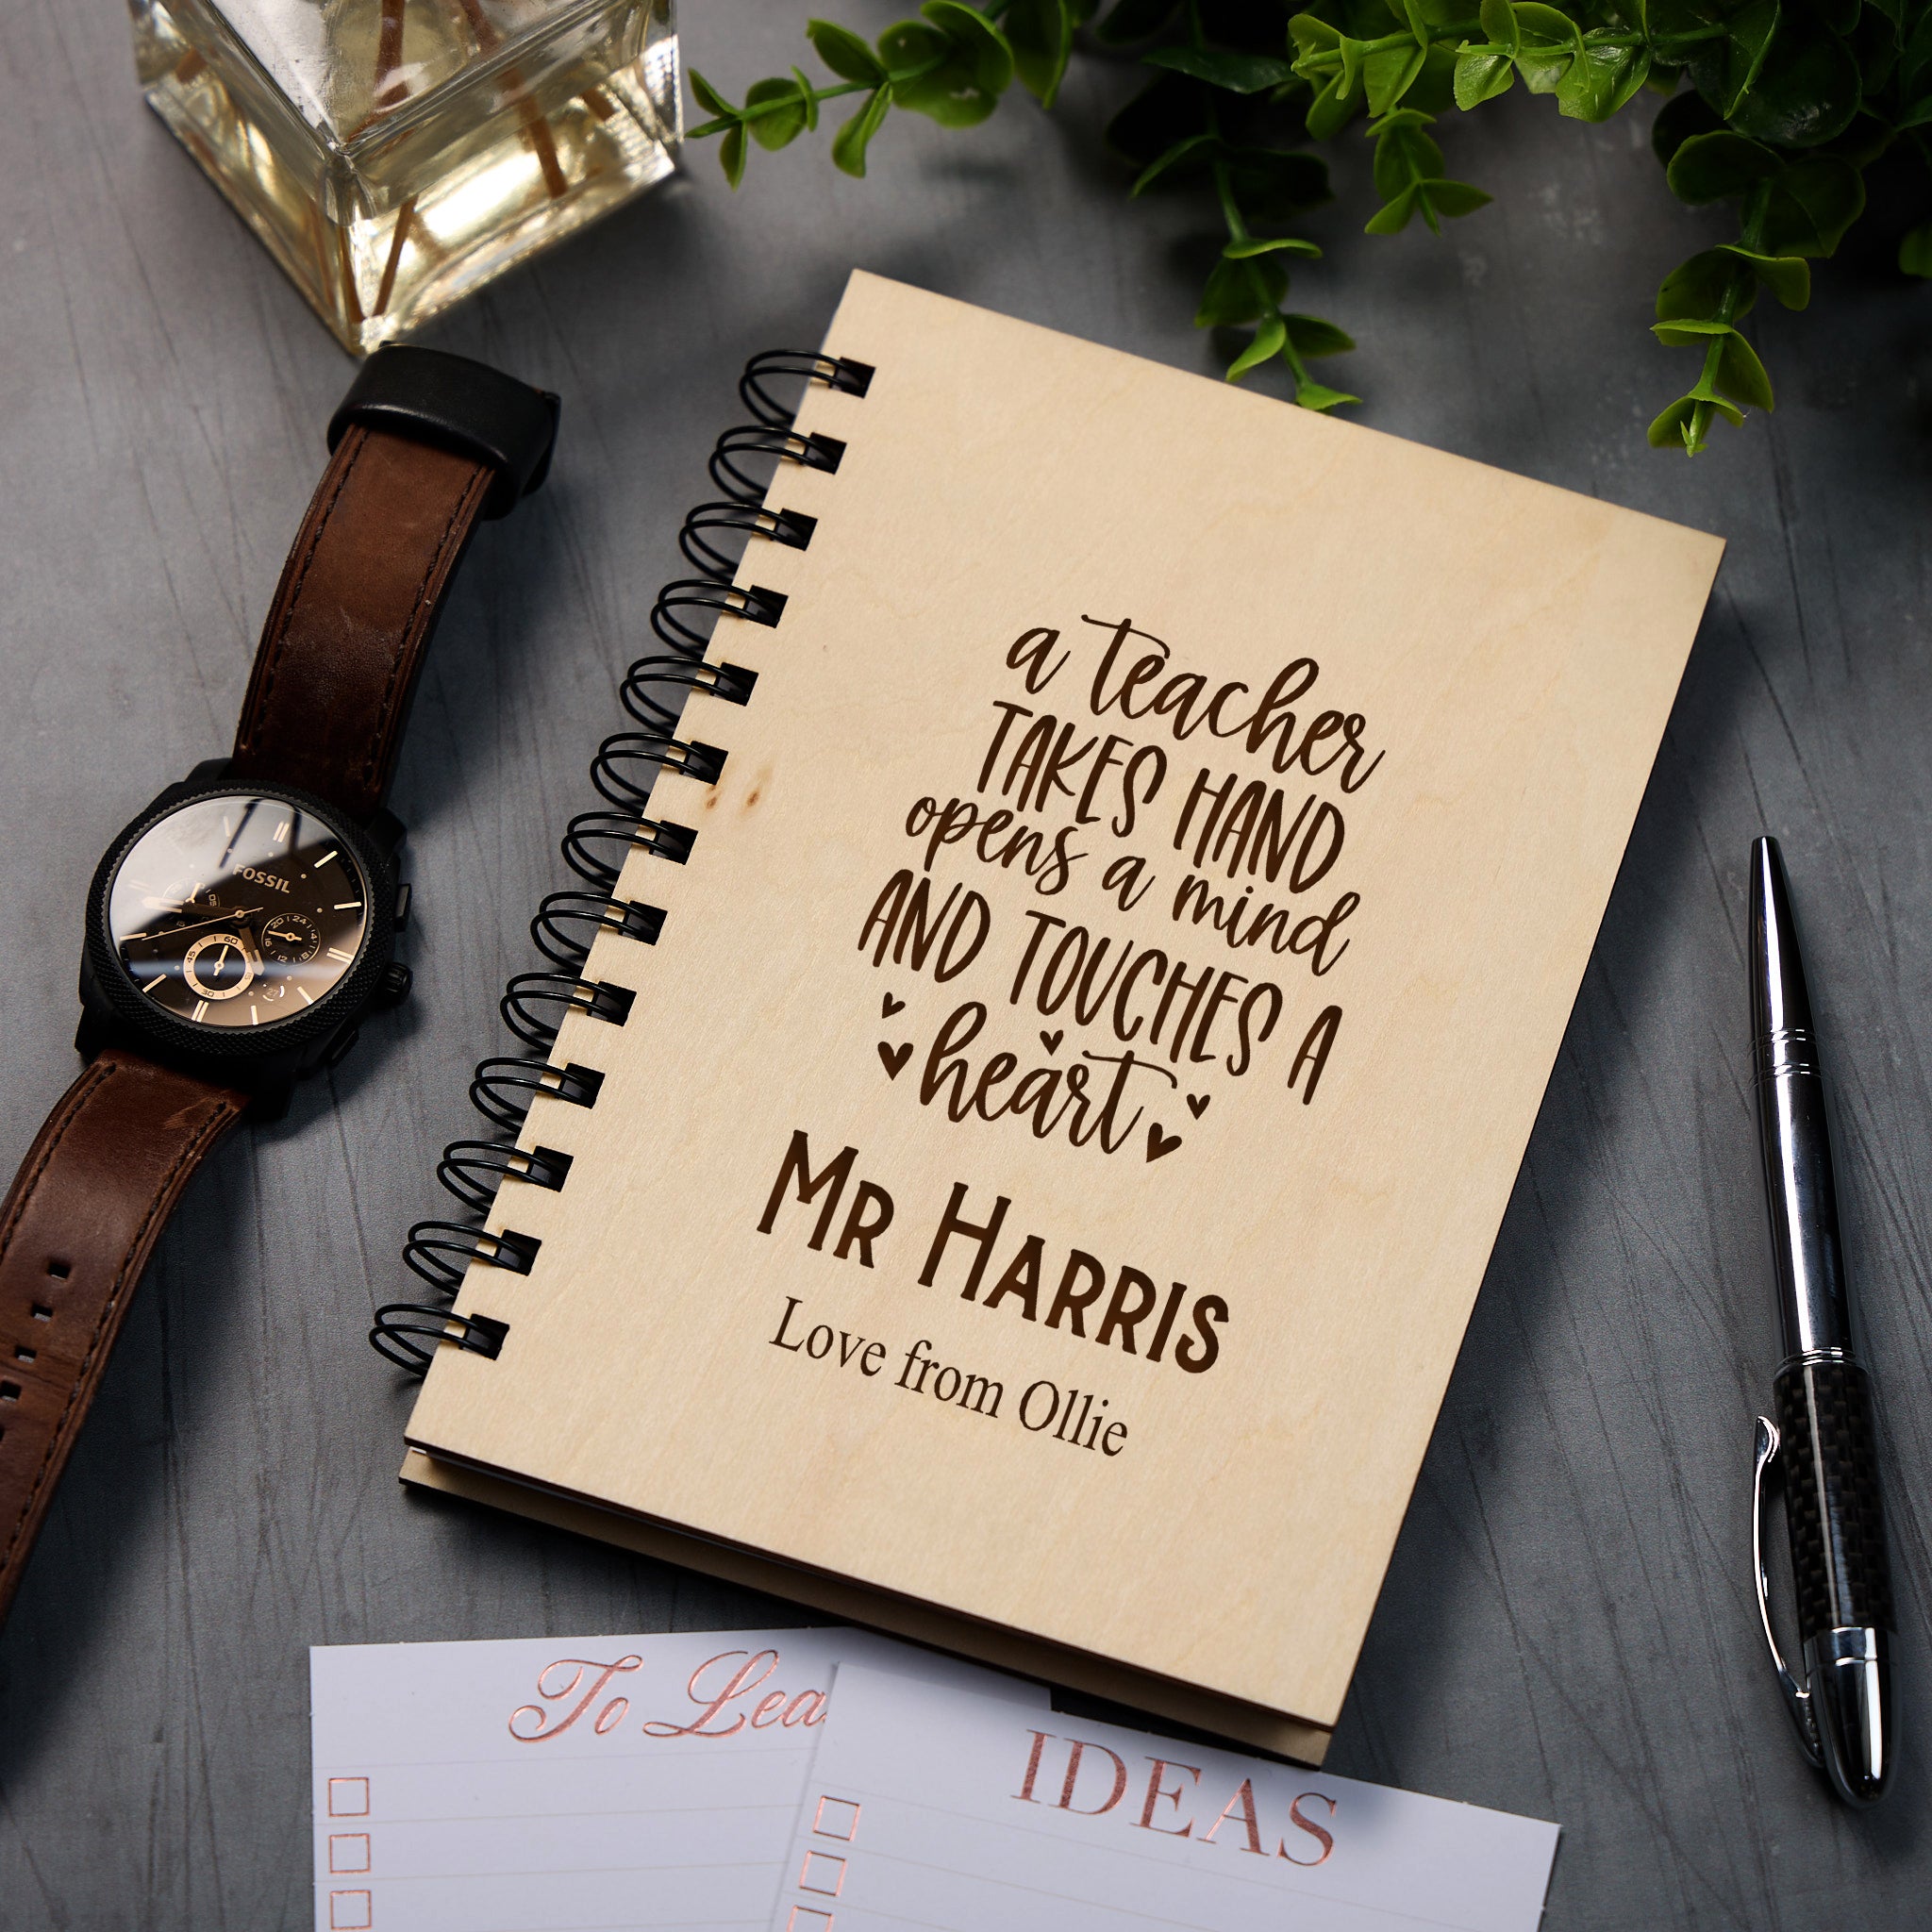 a teacher
TAKES HAND
opens a mind
AND TOUCHES A
heart
MR HARRIS
Love from Ollie
FOSSIL
To Lea
IDEAS